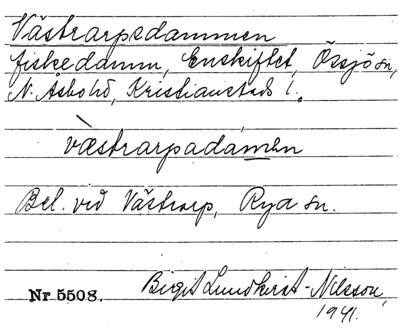 Västrarpsdammen
fiskedamm, Enskiftet, Össjö sn,
N. Åsbo hd, Kristianstads l.
væstrarpadámen
Bel. vid Västrarp, Rya sn.
Nr 5508. Birgit Lundkvist-Nilsson,
1941.